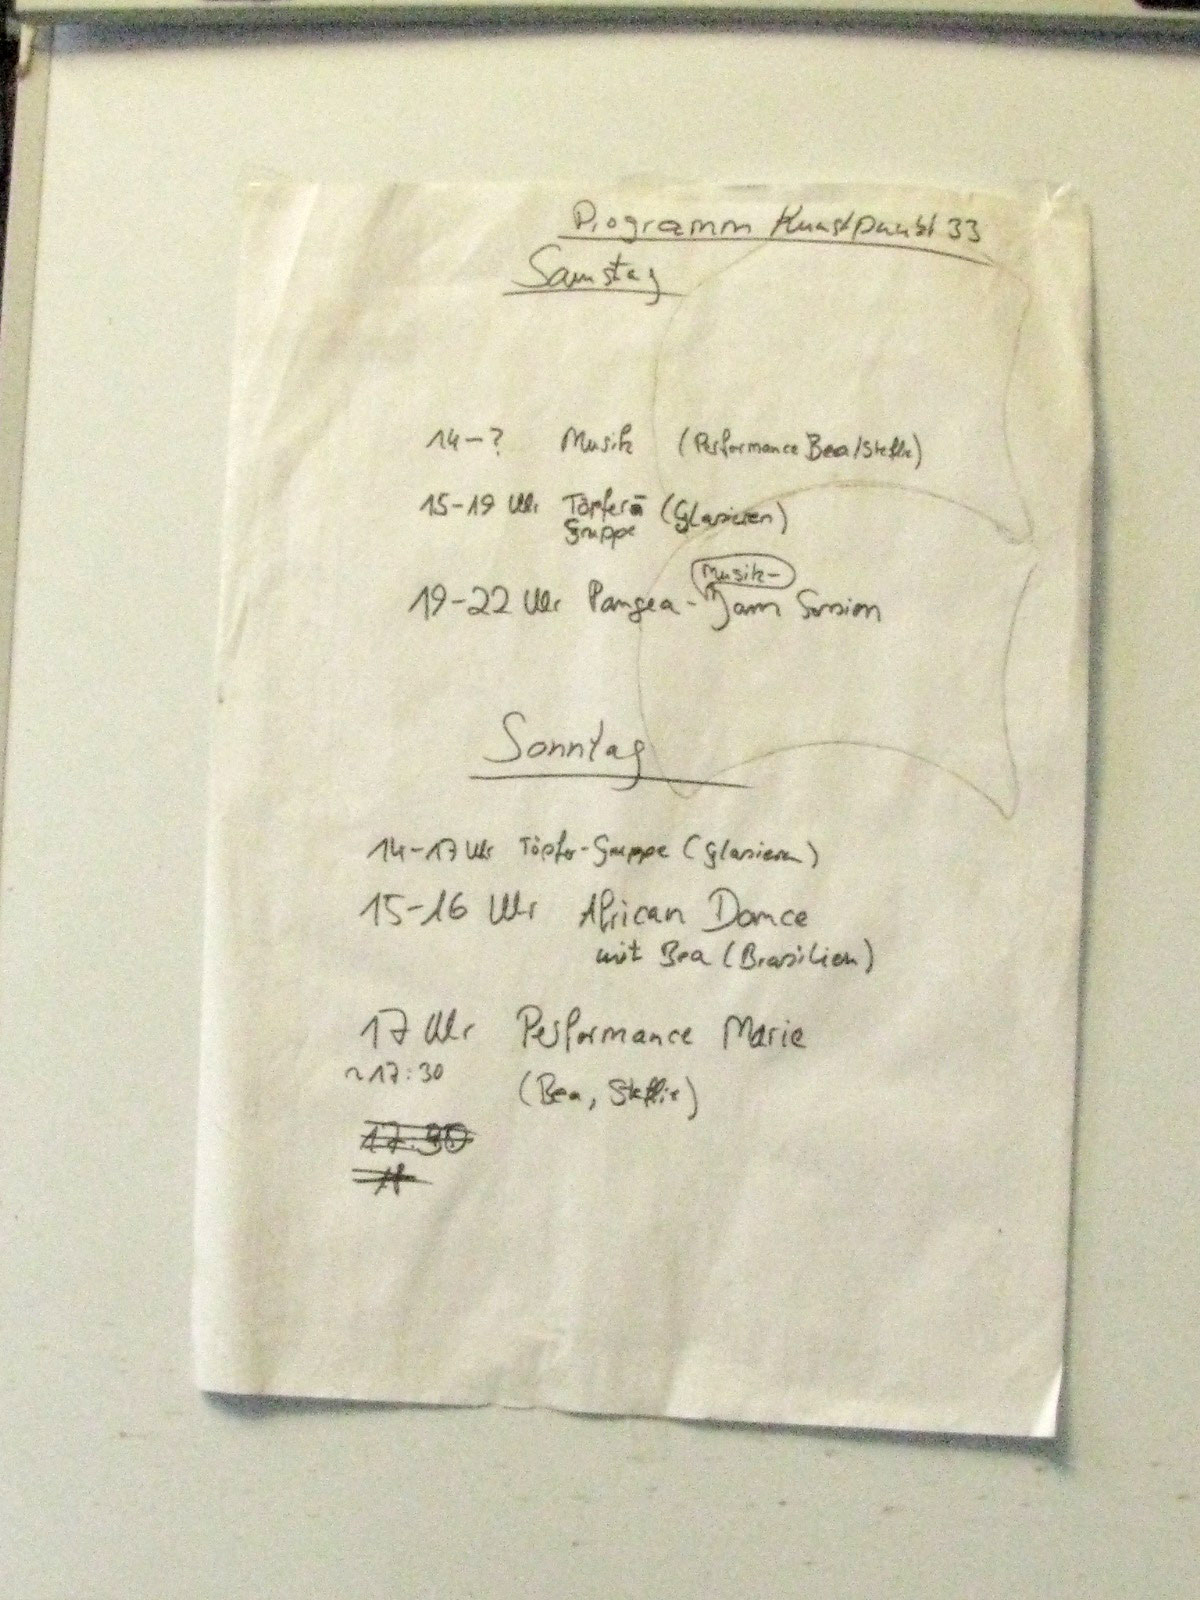 Programm Kunstpunkt 33
Samstag
14-? Musik (Performance Bea/Steffie)
15-19 Uhr Töpfer-
Gruppe (Glasieren)
Musik-
19-22 Uhr Pangea-Jam Session
Sonntag
14-17 Uhr Töpfer-Gruppe (Glasieren)
15-16 Uhr African Dance
mit Bea (Brasilien)
17 Uhr Performance Marie
~17:30 (Bea, Steffie)
17:30